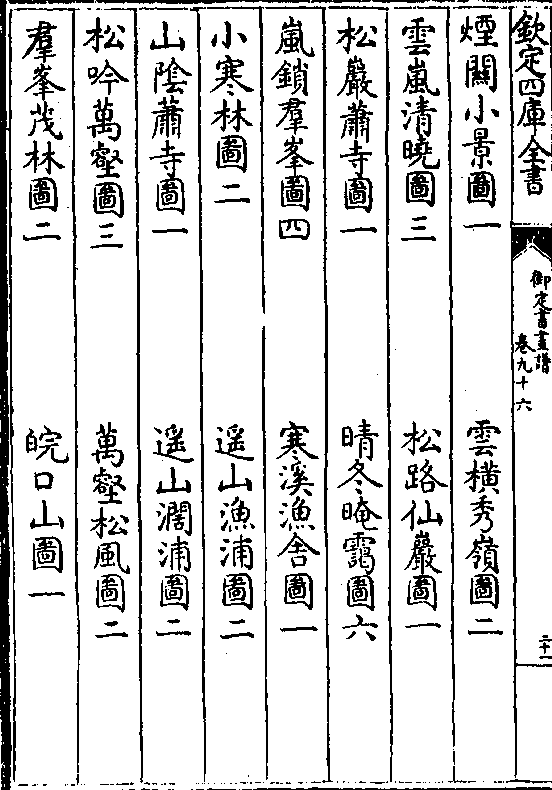 欽定四庫全書
御定書畫譜
卷九十六
二十一
煙關小景圖一 雲橫秀嶺圖二
雲嵐清曉圖三 松路仙巖圖一
松巖蕭寺圖一 晴冬晻靄圖六
嵐鎖羣峯圖四 寒溪漁舍圖一
小寒林圖二 遥山漁浦圖二
山陰蕭寺圖一 遥山濶浦圖二
松吟萬壑圖三 萬壑松風圖二
羣峯茂林圖二 皖口山圖一